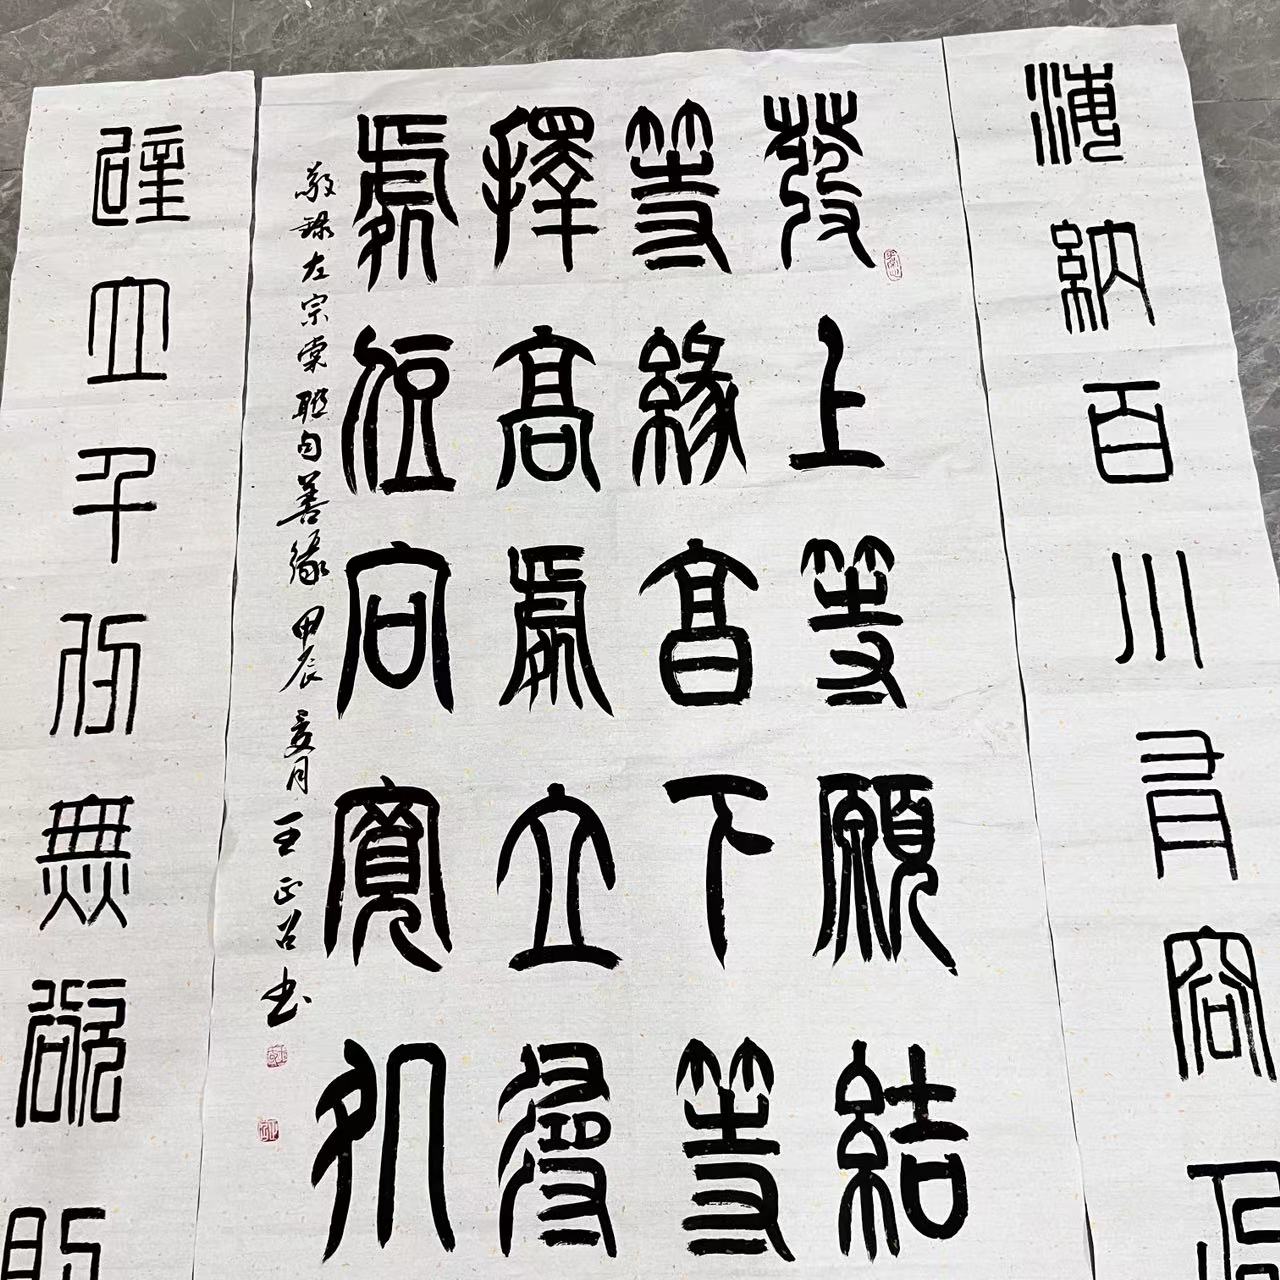 海納百川有容
發上等願結
等緣享下等
擇高處立尋
處住向寬処
敬録左宗棠聯句善緣甲辰夏月王正召书
壁立千仞無欲則